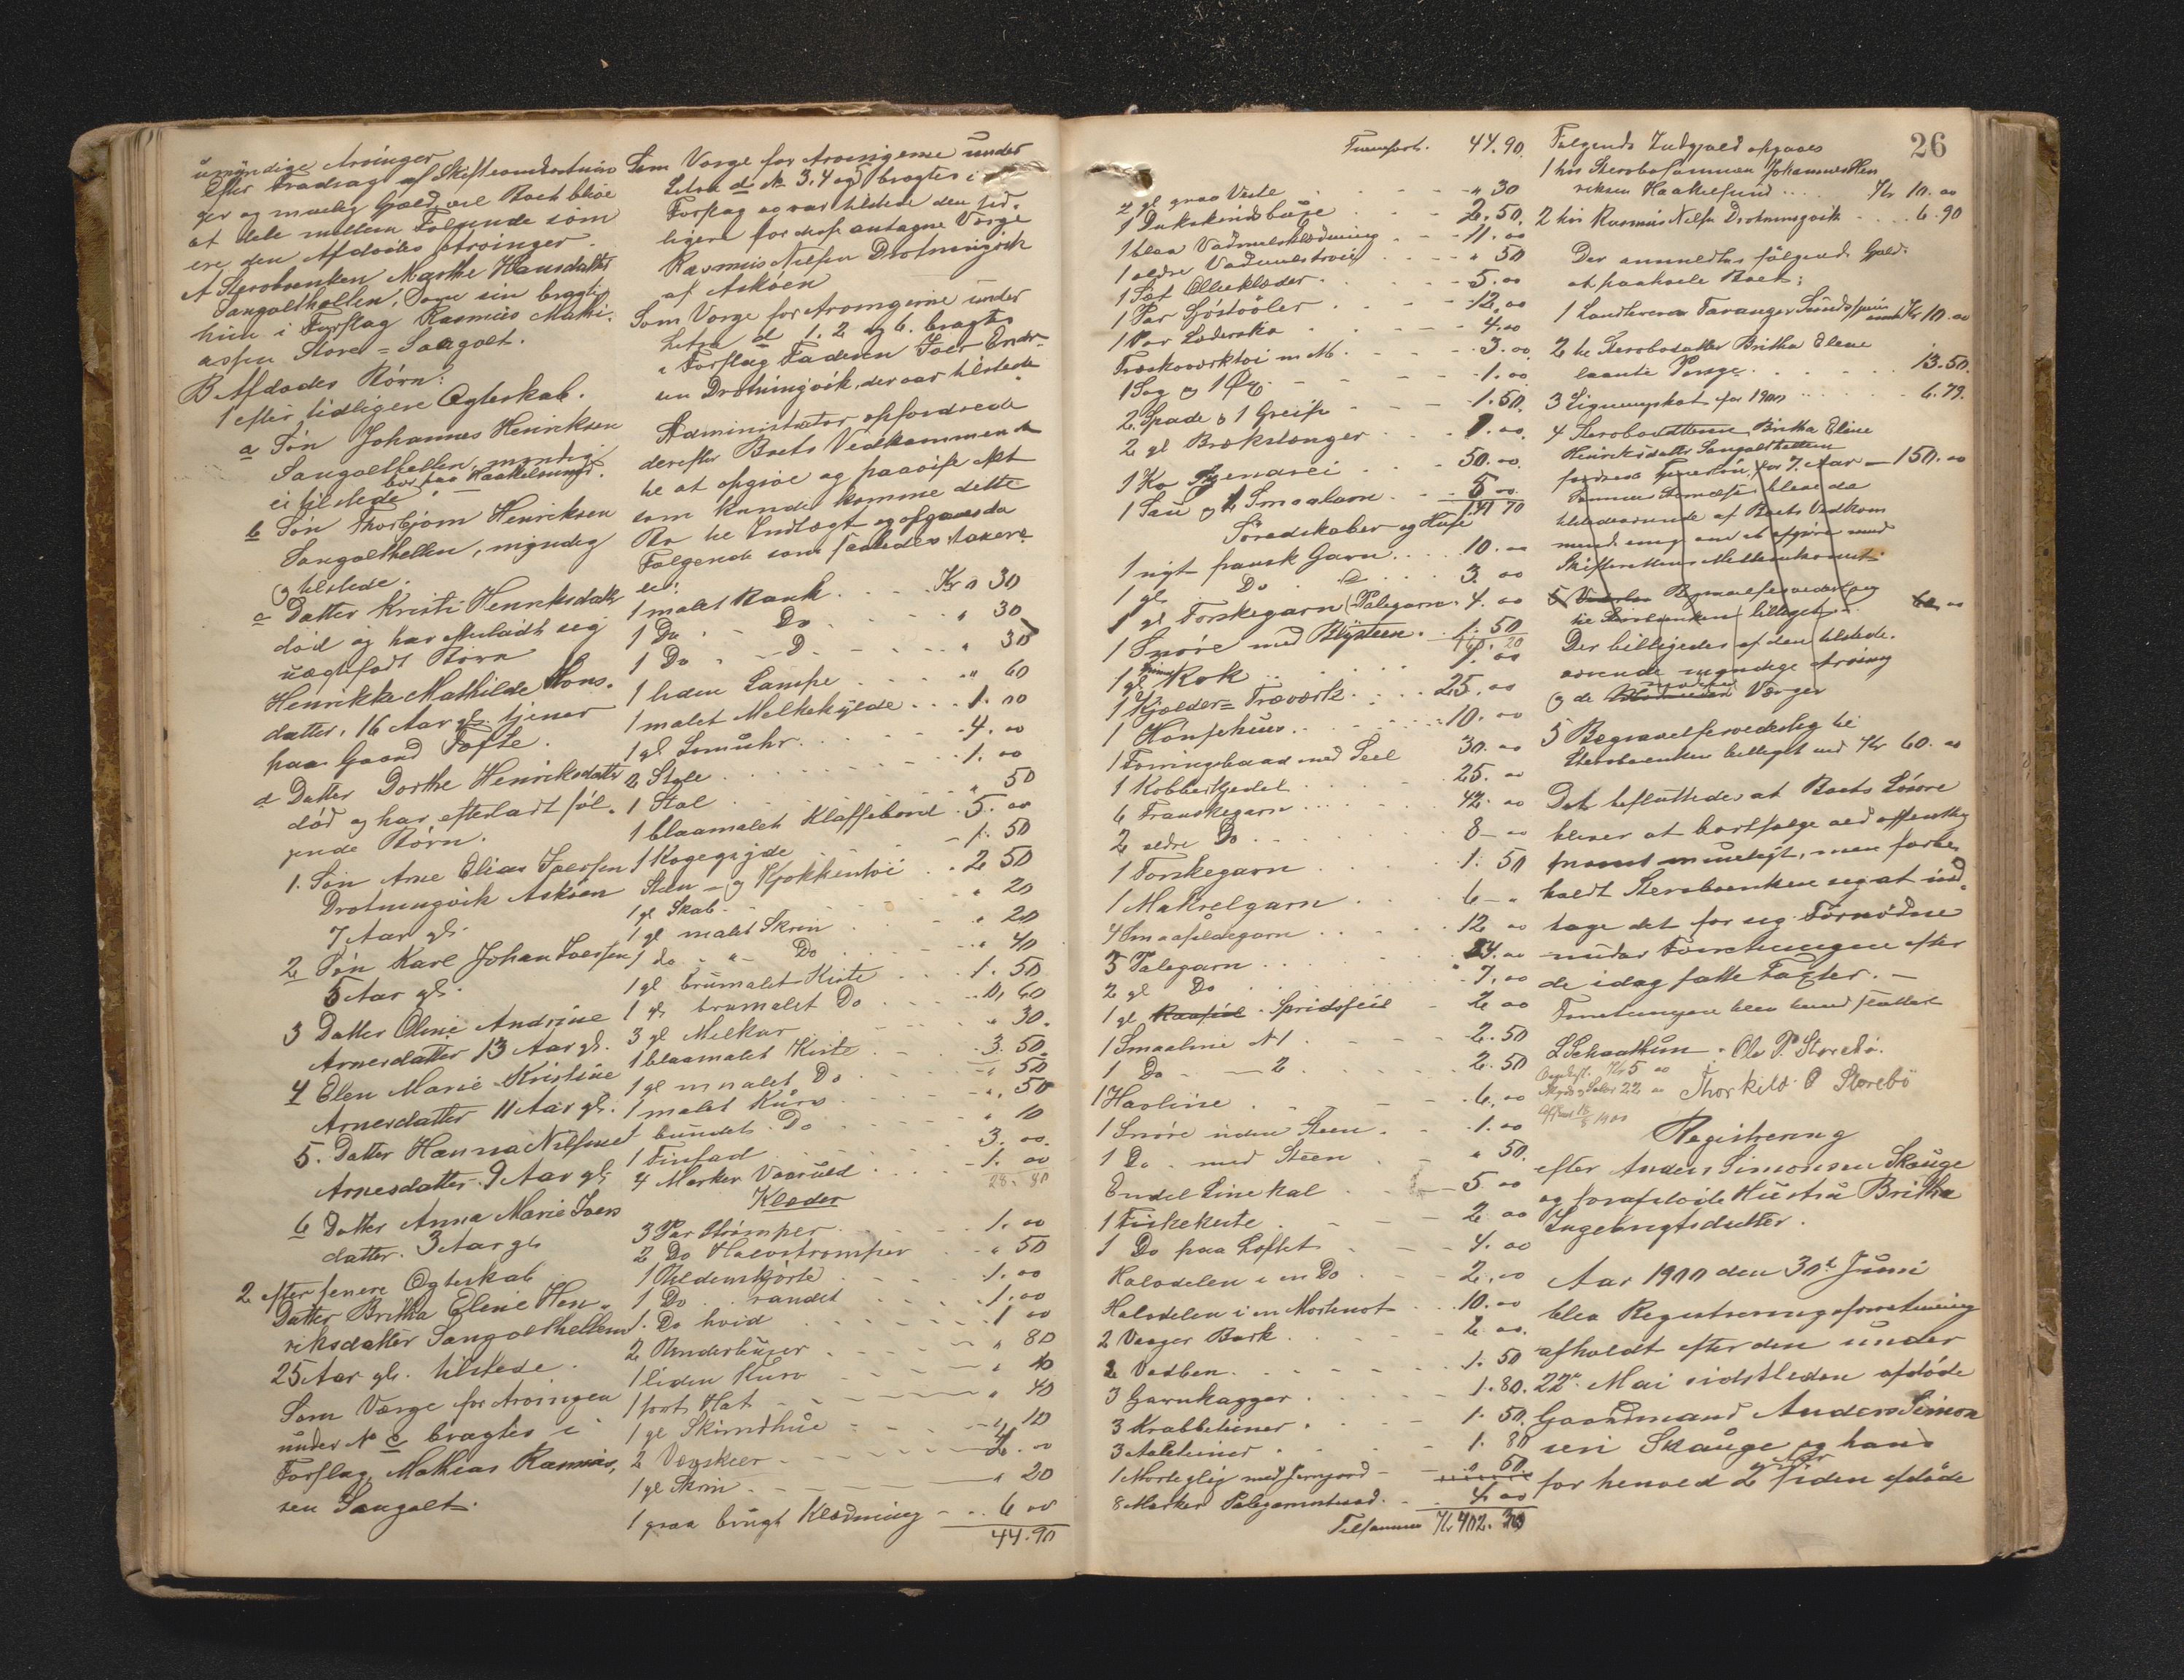 umyndige Arvinger
Efter Fradrag af Skifteomkostnin
ger og mulig Gjæld vil Boet blive
at dele mellem Følgende som
ere den Afdødes Arvinger.
A Sterboenken Marthe Hansdatter
Sangolthellen, som sin
hun i Forslag Rasmus Mathi-
assen Store-Sangolt.
B Afdødes Børn:
1 efter tidligere Ægteskab.
a Søn Johannes Henriksen
Sangolthellen, myndig
bor paa Haakelsund.
ei tilstede
b Søn Thorbjørn Henriksen
Sangolthellen, myndig
og tilstede.
c Datter Kristi Henriksdatter
død og har efterladt sig
uægtefødt Børn
Henrikke Mathilde Mons-
datter, 16 Aar gl. tjener
paa Gaard Tofte.
d Datter Dorthe Henriksdatter
død og har efterladt føl-
gende Børn.
1. Søn Arne Elias Iversen
Drotningvik Askøen
7 Aar gl.
2 Søn Karl Johan Iversen
5 Aar gl.
3 Datter Oline Andrine
Arnesdatter 13 Aar gl.
4 Elen Marie Kristine
Arnesdatter 11 Aar gl.
5. Datter Hanna Nilsine
Arnesdatter 9 Aar gl.
6 Datter Anna Marie Ivers
datter. 3 Aar gl.
2 efter senere Ægteskab
Datter Britha Elene Hen-
riksdatter Sangolthellen
25 Aar gl. tilstede.
Som Værge for Arvingen
under N c bragtes i
Forslag Mathias Rasmus-
sen Sangolt.
Som Værge for Arvingerne under
Litra d No 3, 4 og 5 bragtes i
Forslag og var tilstede den tid-
ligere for disse antagne Værge
Rasmus Nilsen Drotningvik
af Askøen
Som Værge for Arvingerne under
Litra d 1. 2 og 6. bragtes
i Forslag Faderen Iver Endr-
sen Drotningvik, der var tilstede
Administrator opfordrede
derefter Boets Vedkommende
til at opgive og paavise Alt
som kunde komme dette
Bo til Indtægt og opgaves da
Følgende som saaledes taxere-
des:
1 malet Bænk . . . Kr " 30
1 Do - - Do . . . " 30
1 Do - - D. . . . " 30
1 liden Lampe . . . " 60
1 malet Melkehylde . . . 1. 00
1 gl Lomuhr . . . 4. 00
2 Stole . . . 1. 00
1 Stol . . . " 50
1 blaamalet Klaffebord . 5. 00
1 Kogegryde . . . 1. 50
Steen- og Kjøkkentøi . . 2 50
1 gl Skab . . . " 20
1 gl malet Skrin . . . " 20
1 do - " - Do . . . " 40
1 gl brunmalet Kiste . . . 1. 50
1 gl brunmalet Do . . . 0, 60
3 gl Melkar . . . " 30.
1 blaamalet Kiste . . . 3. 50
1 gl umalet Do . . . " 50
1 malet Kurv . . . " 50
1 bundet Do . . . " 10
1 Tinfad . . . 3. 00
4 Marker Vaaruld . . . 1. 00
28. 80
Klæder
3 Par Strømper . . . 1. 00
2 Do Halvstrømper . . " 50
1 Uldenskjorte . . . 1. 00
1 Do . . randet . . . 1. 00
1. Do hvid . . . 1 00
2 Underbuxer . . . " 80
1 liden Kurv . . . " 10
1 sort Hat . . . " 40
1 gl Skindhue . . . " 10
2 . . . 2. 00
1 gl Skrin . . . " 20
1 graa brugt Klædning . . 6 00
44. 90
26
Transport. 44. 90.
2 gl graa Veste . . . " 30
1 Dukskindsbuxe . . . 2. 50.
1 blaa Vadmelsklædning . . . 11. 00
1 ældre Vadmelstrøie . . . " 50
1 Sæt Olieklæder . . . 5. 00
1 Par Sjøstøvler . . . 12. 00
1 Par Lædersko . . . 4. 00
Træskoværktøi m M. . . . 3. 00
1 Sag og 1 Øx . . . 1. 00
2 Spade & 1 Greip . . . 1. 50.
2 gl Brækstænger . . . 1. 00.
1 Ko . . . 50. 00.
1 Sau og 2 Smaalam . . . 5 00
141 70
Søredskaber og Huse
1 nyt fransk Garn . . . 10. 00
1 gl. Do . . . 3. 00
1 gl Torskegarn (Palegarn 4. 00
1 Snøre med Blysteen . . 1. 50
160. 20
1 gl Rok . . . 1. 00
1 Kjælder-Træværk . . . 25. 00
1 Hønsehus . . . 10. 00
1 Færingsbaad med Seil 30. 00
1 Kobberkjedel . . . 25. 00
6 Franskegarn . . . 42. 00
2 ældre Do . . . 8 - 00
1 Torskegarn . . . 1. 50
1 Makrelgarn . . . 6 - "
4 Smaasildegarn . . . 12 00
3 Palegarn . . . 24. 00
2 gl Do . . . 7. 00
1 gl Raaseil Spridseil . . . 2 00
1 Smaaline N 1 . . . 2. 50
1 Do - - 2 . . . 2. 50
1 Havline . . . 6. 00
1 Snøre uden Steen . . . 1. 00
1 Do. med Steen . . . " 50.
Endel Linekal . . . 5. 00
1 Fiskekiste . . . 2 00
1 Do paa Loftet . . . 4. 00
Halvdelen i en Do . . . 2. 00
Halvdelen i en Mortenot . . . 10. 00
2 Vaager Bark . . . 2 00.
2 Vedben . . . 1. 50
3 Garnkagger . . . 1. 80.
3 Krabbeteiner . . . 1. 50.
3 Aaleteiner . . . 1. 80
1 Morteglip med Jerngjord . . . " 50
8 Marker Palegarnstraad . . 4. 00
Tilsammen Kr 402. 30
Følgende Indgjæld opgaves
1 hos Sterbosønnen Johannes Hen
riksen Haakelsund . . . Kr 10. 00
2 hos Rasmus Nilsen Drotningvik . . . 6. 90
Der anmeldtes følgende Gjæld
at paahvile Boet:
1 Landhever Kr 10. 00
2 til Sterbodatter Britha Elene
laante Penge . . . 13. 50.
3 Ligningskat for 1900 . . . 6. 79.
4 Sterbodatteren Britha Eline
Henriksdatter Sangolthellen
fordrede Tjenerløn for 7. Aar — 150. 00
tilstedeværende af Boets Vedkom
mende enig om at afgjøre med
Skifterettens Mellemkomst.
5 Begravelsesvederlag
til Sterboenken billiget . . . 60 00
Der billigedes af den tilstede-
værende myndige Arving
og de Værger
5 Begravelsesvederlag til
Sterboenken billiget med Kr 60. 00
Det besluttedes at Boets Løsøre
bliver at bortsælge ved offentlig
snarest mueligt, men forbe-
holdt Sterboenken sig at ind-
tage det for sig Fornødne
under Forretningen efter
de idag satte Taxter. —
Forretningen blev hermed sluttet
L Schaathun. Ole P. Storebø.
Kr 5 00
22 00 Thorkild O Storebö
1900
Registrering
efter Anders Simonsen Skauge
og forafdøde Hustru Britha
Ingebrigtsdatter.
Aar 1900 den 30te Juni
blev Registreringsforretning
afholdt efter den under
22de Mai sidstleden afdøde
Gaardmand Anders Simon
sen Skauge og hans
for henved 2 Aar siden afdøde